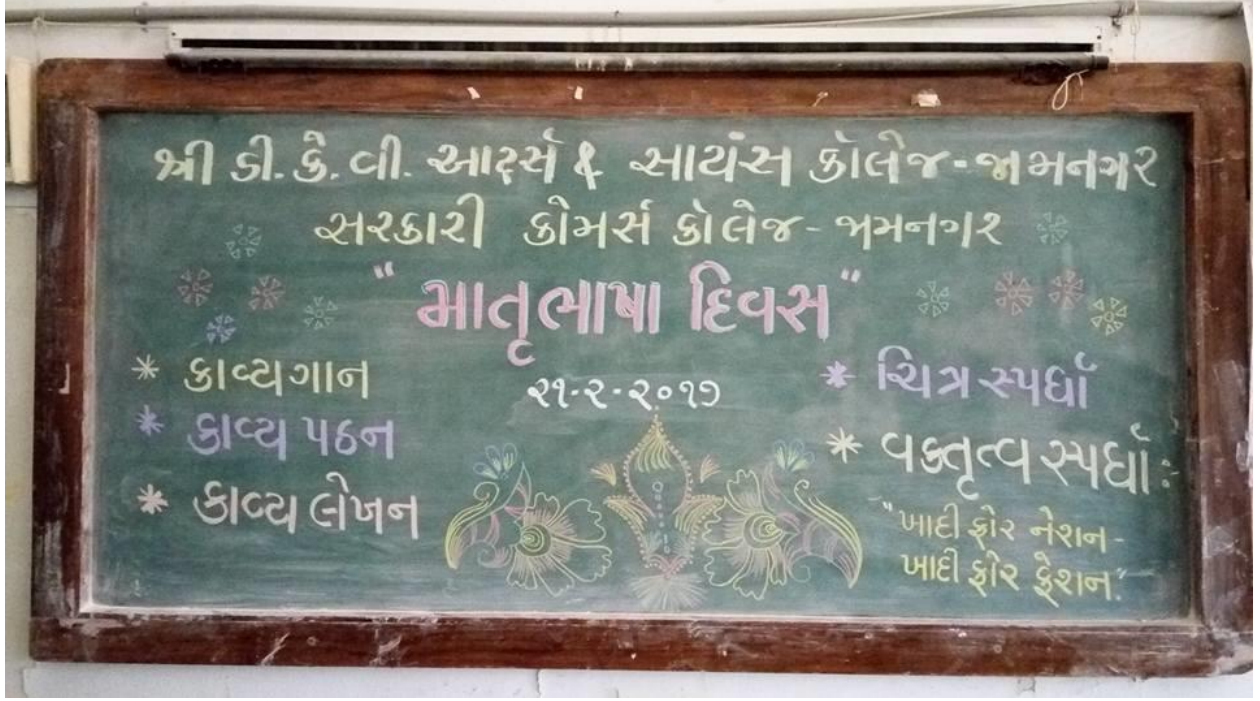 શ્રી ડી. કે. વી. આર્ટ્સ & સાયંસ કૉલેજ-જામનગર
સરકારી કોમર્સ કૉલેજ - જામનગર
"માતૃભાષા દિવસ"
૨૧-૨-૨૦૧૭
* કાવ્યગાન
* કાવ્ય પઠન
* કાવ્ય લેખન
* ચિત્ર સ્પર્ધા
* વક્તૃત્વ સ્પર્ધા:
"ખાદી ફોર નેશન-
ખાદી ફોર ફેશન."